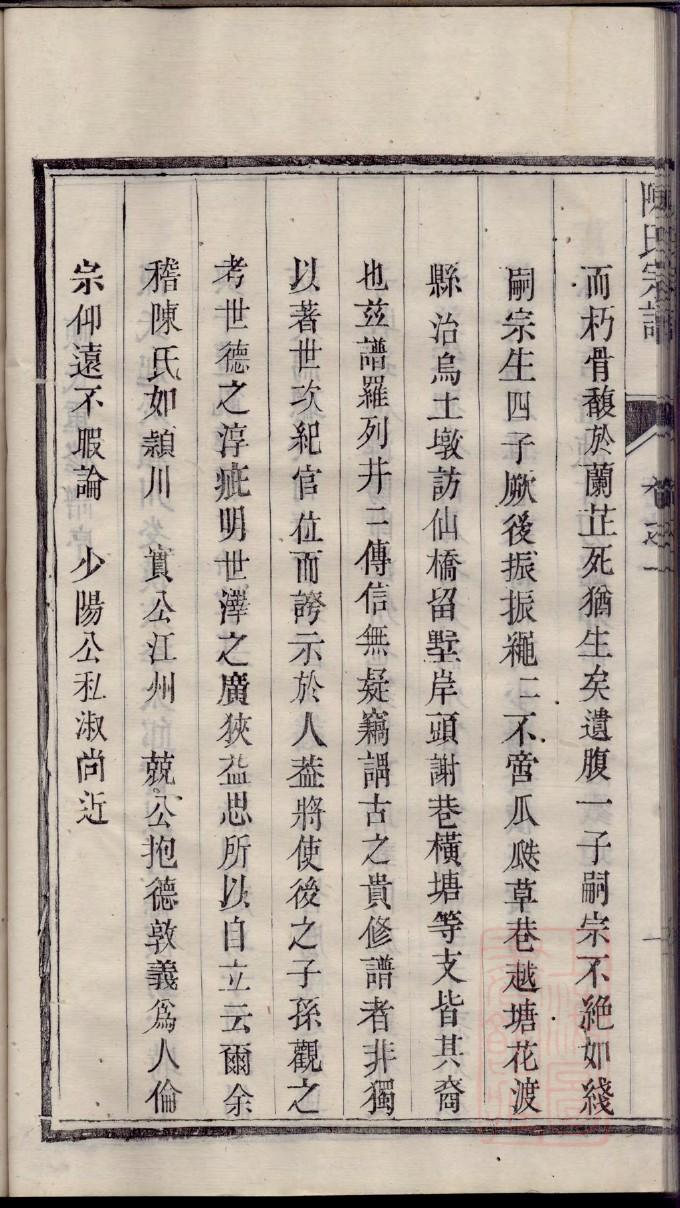 陳氏宗譜
卷之一
而朽骨馥於蘭芷死猶生矣遺腹一子嗣宗不絶如綫
嗣宗生四子厥後振振繩二不啻瓜瓞草巷越塘花渡
縣治烏土墩訪仙橋留墅岸頭謝巷橫塘等支皆其裔
也玆譜羅列井二傳信無疑竊謂古之貴修譜者非獨
以著世次紀官位而誇示於人葢將使後之子孫觀之
考世德之淳疵明世澤之廣狹益思所以自立云爾余
稽陳氏如潁川　實公江州　兢公抱德敦義爲人倫
宗仰遠不暇論　少陽公私淑尚近